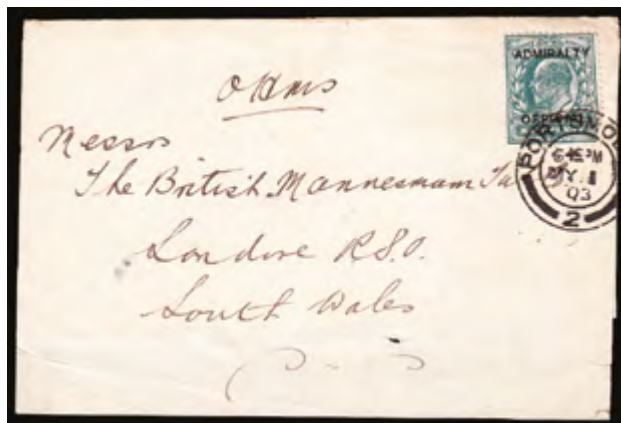 ADMIRALTY
OFFICIAL
PORTSMO
6 45 PM
MY 1
03
2
OHMS
Messrs
The British Mannesmam Tu
Landore R.S.O.
South Wales